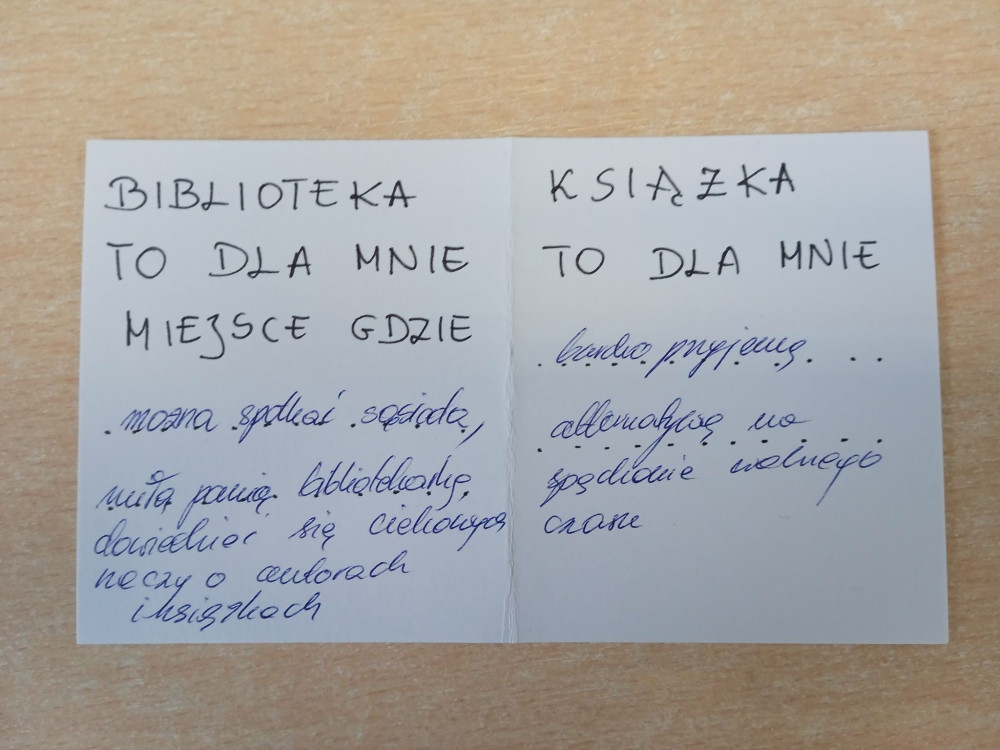 BIBLIOTEKA
TO DLA MNIE
MIEJSCE GDZIE
można spotkać sąsiada,
miłą panią bibliotekarkę,
dowiedzieć się ciekawych
rzeczy o autorach
i książkach
KSIĄŻKA
TO DLA MNIE
bardzo przyjemną . . .
alternatywą na
spędzanie wolnego
czasu